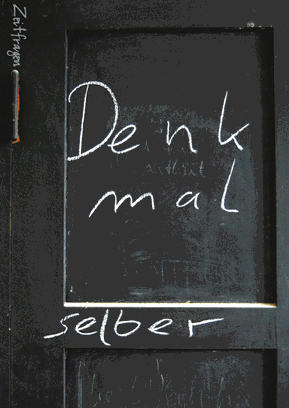 Zeitfragen
Denk
mal
selber